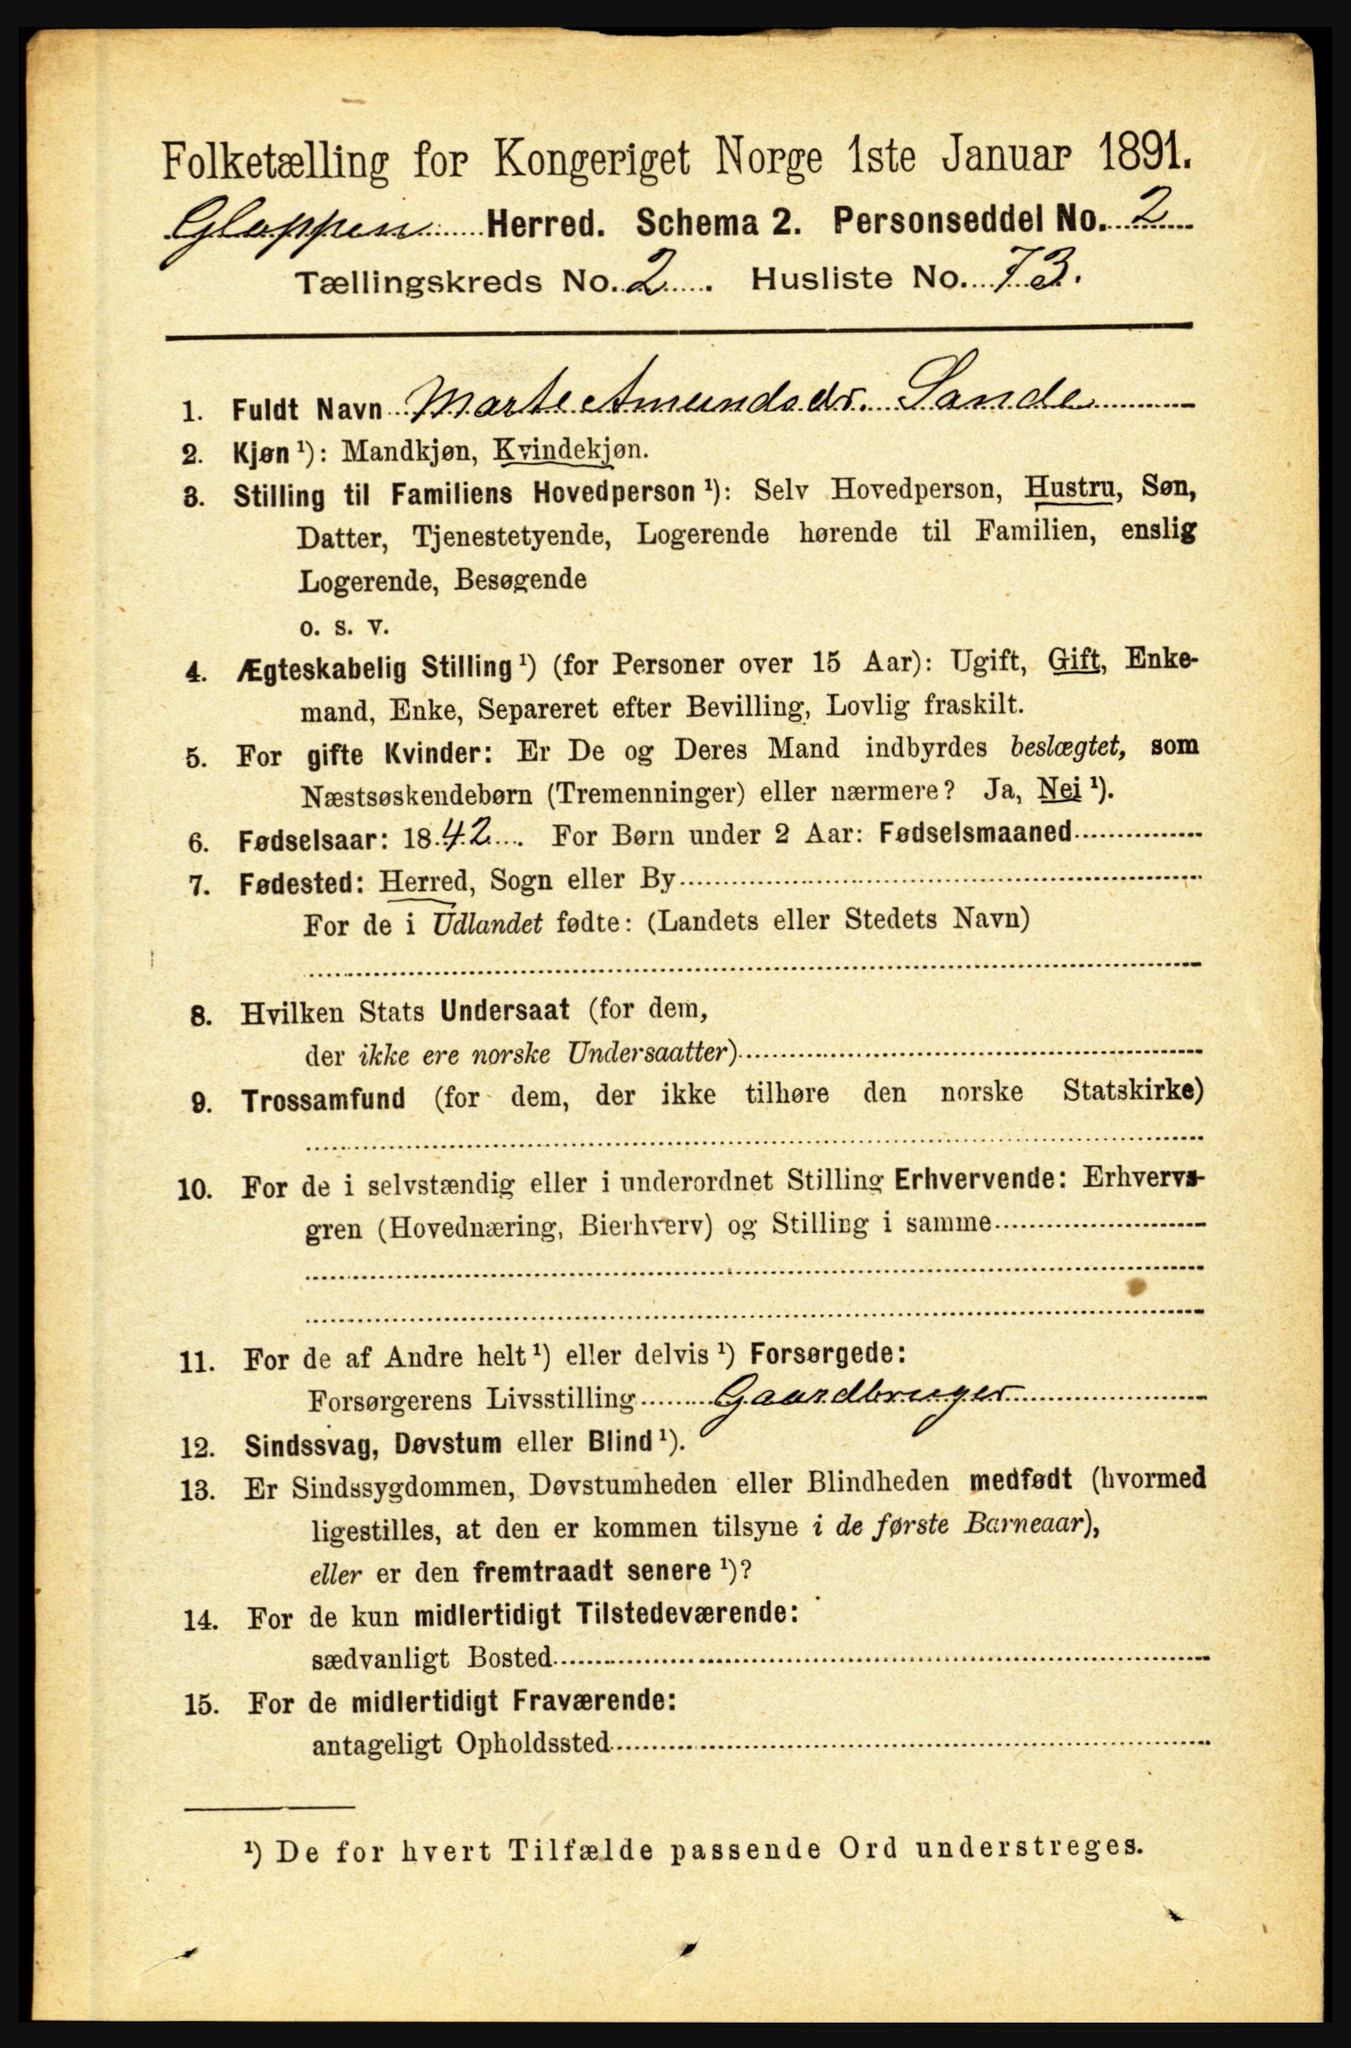 Folketælling for Kongeriget Norge 1ste Januar 1891.
Gloppen Herred. Schema 2. Personseddel No. 2
Tællingskreds No. 2. Husliste No. 73.
1. Fuldt Navn Marte Amundsdr. Sande
2. Kjøn ¹): Mandkjøn, Kvindekjøn.
3. Stilling til Familiens Hovedperson ¹): Selv Hovedperson, Hustru, Søn,
Datter, Tjenestetyende, Logerende hørende til Familien, enslig
Logerende, Besøgende
o. s. v.
4. Ægteskabelig Stilling ¹) (for Personer over 15 Aar): Ugift, Gift, Enke-
mand, Enke, Separeret efter Bevilling, Lovlig fraskilt.
5. For gifte Kvinder: Er De og Deres Mand indbyrdes beslægtet, som
Næstsøskendebørn (Tremenninger) eller nærmere? Ja, Nei ¹).
6. Fødselsaar: 1842. For Børn under 2 Aar: Fødselsmaaned
7. Fødested: Herred, Sogn eller By
For de i Udlandet fødte: (Landets eller Stedets Navn)
8. Hvilken Stats Undersaat (for dem,
der ikke ere norske Undersaatter)
9. Trossamfund (for dem, der ikke tilhøre den norske Statskirke)
10. For de i selvstændig eller i underordnet Stilling Erhvervende: Erhvervs-
gren (Hovednæring, Bierhverv) og Stilling i samme
11. For de af Andre helt ¹) eller delvis ¹) Forsørgede:
Forsørgerens Livsstilling Gaardbruger
12. Sindssvag, Døvstum eller Blind ¹).
13. Er Sindssygdommen, Døvstumheden eller Blindheden medfødt (hvormed
ligestilles, at den er kommen tilsyne i de første Barneaar),
eller er den fremtraadt senere ¹)?
14. For de kun midlertidigt Tilstedeværende:
sædvanligt Bosted
15. For de midlertidigt Fraværende:
antageligt Opholdssted
¹) De for hvert Tilfælde passende Ord understreges.